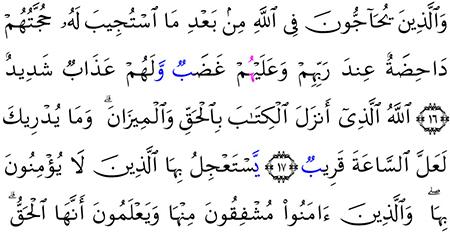 وَٱلَّذِينَ يُحَآجُّونَ فِى ٱللَّهِ مِنۢ بَعْدِ مَا ٱسْتُجِيبَ لَهُۥ حُجَّتُهُمْ
دَاحِضَةٌ عِندَ رَبِّهِمْ وَعَلَيْهِمْ غَضَبٌ وَّلَهُمْ عَذَابٌ شَدِيدٌ
﴿١٦﴾ ٱللَّهُ ٱلَّذِىٓ أَنزَلَ ٱلْكِتَـٰبَ بِٱلْحَقِّ وَٱلْمِيزَانَ ۗ وَمَا يُدْرِيكَ
لَعَلَّ ٱلسَّاعَةَ قَرِيبٌ ﴿١٧﴾ يَّسْتَعْجِلُ بِهَا ٱلَّذِينَ لَا يُؤْمِنُونَ
بِهَا ۖ وَٱلَّذِينَ ءَامَنُوا۟ مُشْفِقُونَ مِنْهَا وَيَعْلَمُونَ أَنَّهَا ٱلْحَقُّ ۗ